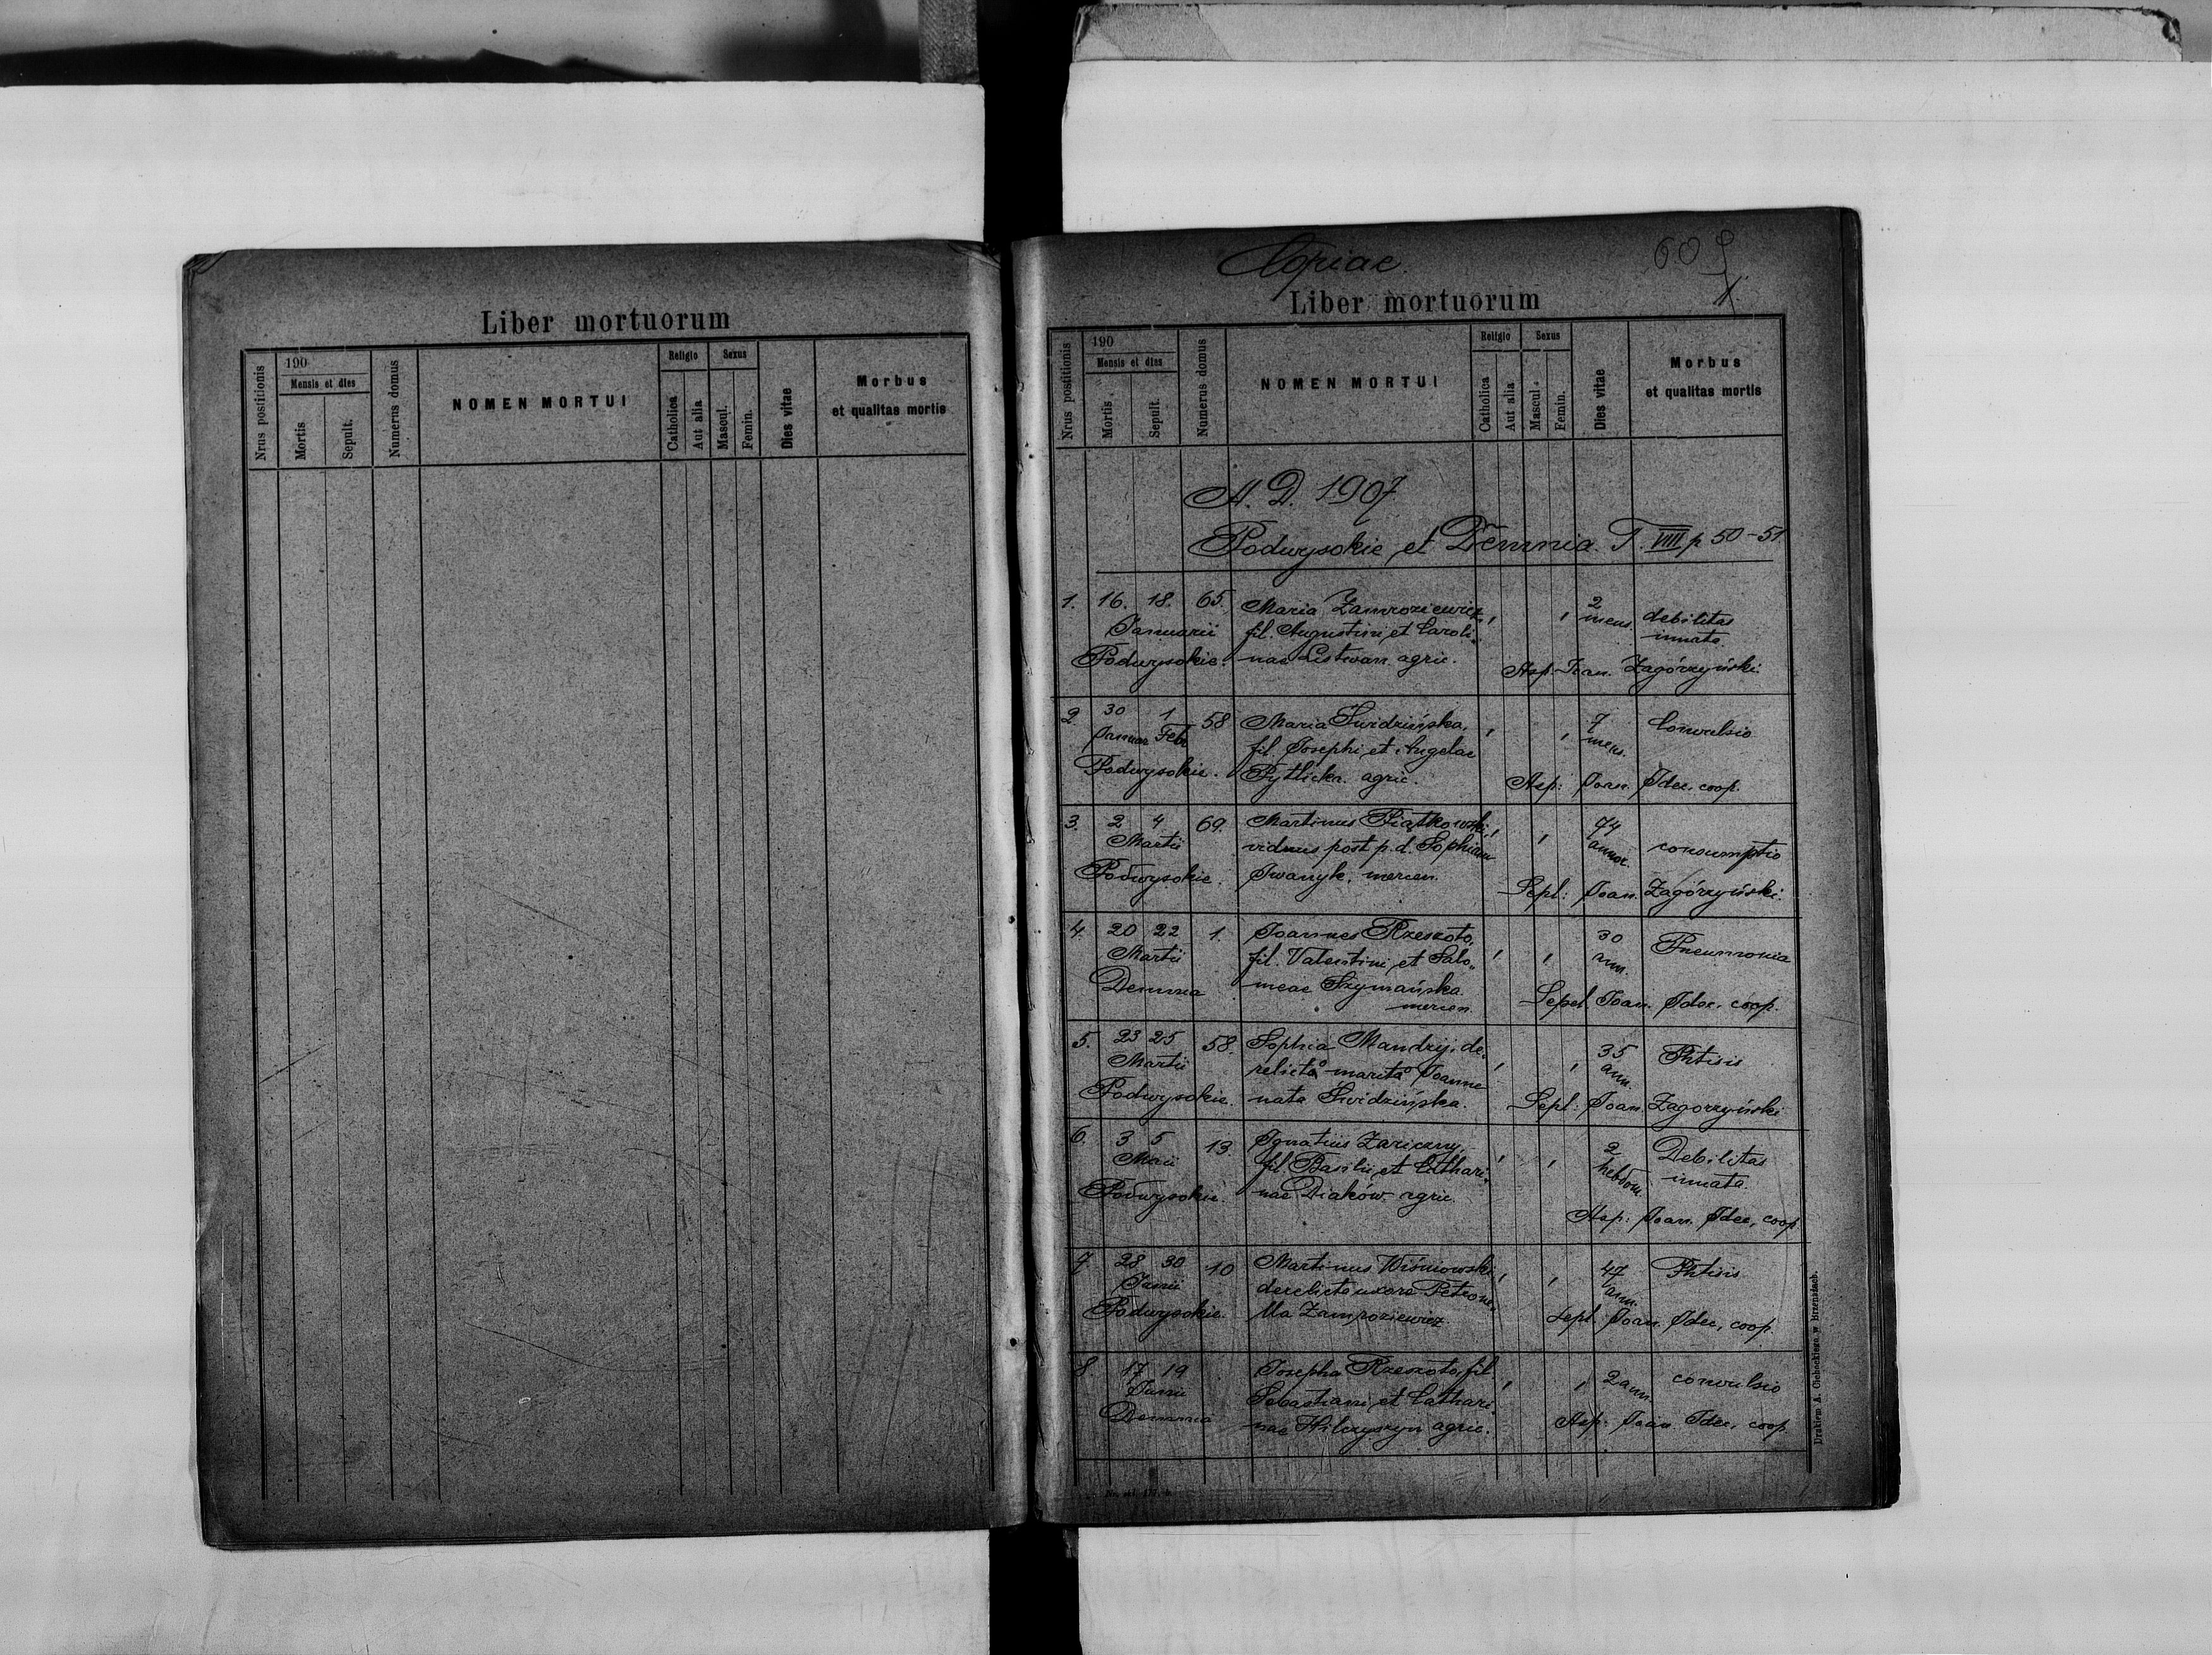 Liber mortuorum
Nrus postitionis
190
Mensis et dies
Mortis
Sepult.
Numerus domus
NOMEN MORTUI
Religio
Catholica
Aut alia
Sexus
Mascul.
Femin.
Dies vitae
Morbus
et qualitas mortis
Copiae.
609
Liber mortuorum
Nrus postitionis
190
Mensis et dies
Mortis
Sepult.
Numerus domus
NOMEN MORTUI
Religio
Catholica
Aut alia
Sexus
Mascul.
Femin.
Dies vitae
Morbus
et qualitas mortis
A. D. 1907
Podwysokie et Demnia. T. VIII p 50-51
1. 16. 18. 65. Maria Zamroziewicz, 2 mens. debilitas
Januarii fil. Augustini et Caroli- innata.
Podwysokie. nae Listwan agric. Asp. Joan. Zagórzyński.
2. 30 1 58 Maria Świdzińska, 7 mens. Convulsio
Januar Febr fil. Josephi et Angelae
Podwysokie. Pytlicka. agric. Asp: Joan. Idec, coop.
3. 2 4 69. Martinus Piątkowski, 74 annor. consumptio
Martii viduus post p. d. Sophiam
Podwysokie. Iwanyk, mercen. Sepl: Joan. Zagórzyński.
4. 20 22 1. Joannes Rzeszoto, 30 ann. Pneumonia
Martii fil. Valentini et Salo-
Demnia meae Szymańska. Sepel. Joan. Idec, coop.
mercen.
5. 23 25 58. Sophia Mandzij, de- 35 ann. Phtisis
Martii relicto marito Joanne
Podwysokie. nata Świdzińska. Sepl: Joan. Zagorzyński
6. 3 5 13. Ignatius Zariczny, 2 hebdom. Debilitas
Maii fil. Basilii et Cathari- innata.
Podwysokie. nae Diaków. agric.
Asp: Joan. Idec, coop
7. 28 30 10 Martinus Wiśniowski, 47 ann. Phtisis
Junii derelicto uxore Petrone-
Podwysokie. lla Zamroziewicz. Sepl. Joan. Idec, coop.
8. 17 19 Josepha Rzeszoto, fil 2 ann. convulsio
Junii Sebastiani et Cathari-
Demnia nae agric. Asp: Joan. Idec, coop
Drukiem A. Cichockiego w Brzeżanach.